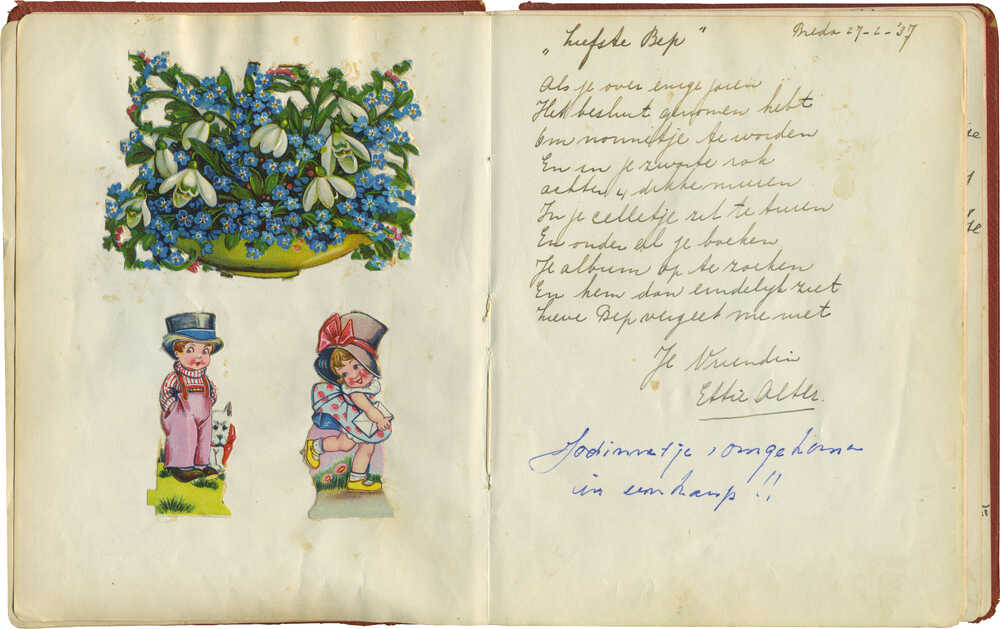 „Liefste Bep”
Breda 27-2-'37
Als je over enige jaren
Het besluit genomen hebt
Om nonnetje te worden
En in je zwarte rok
achter 4 dikke muren
In je celletje zit te turen
En onder al je boeken
Je album op te zoeken
En hem dan eindelijk ziet
Lieve Bep vergeet me niet
Je Vriendin
Ettie Alter.
Jodinnetje, omgekomen
in een kamp!!